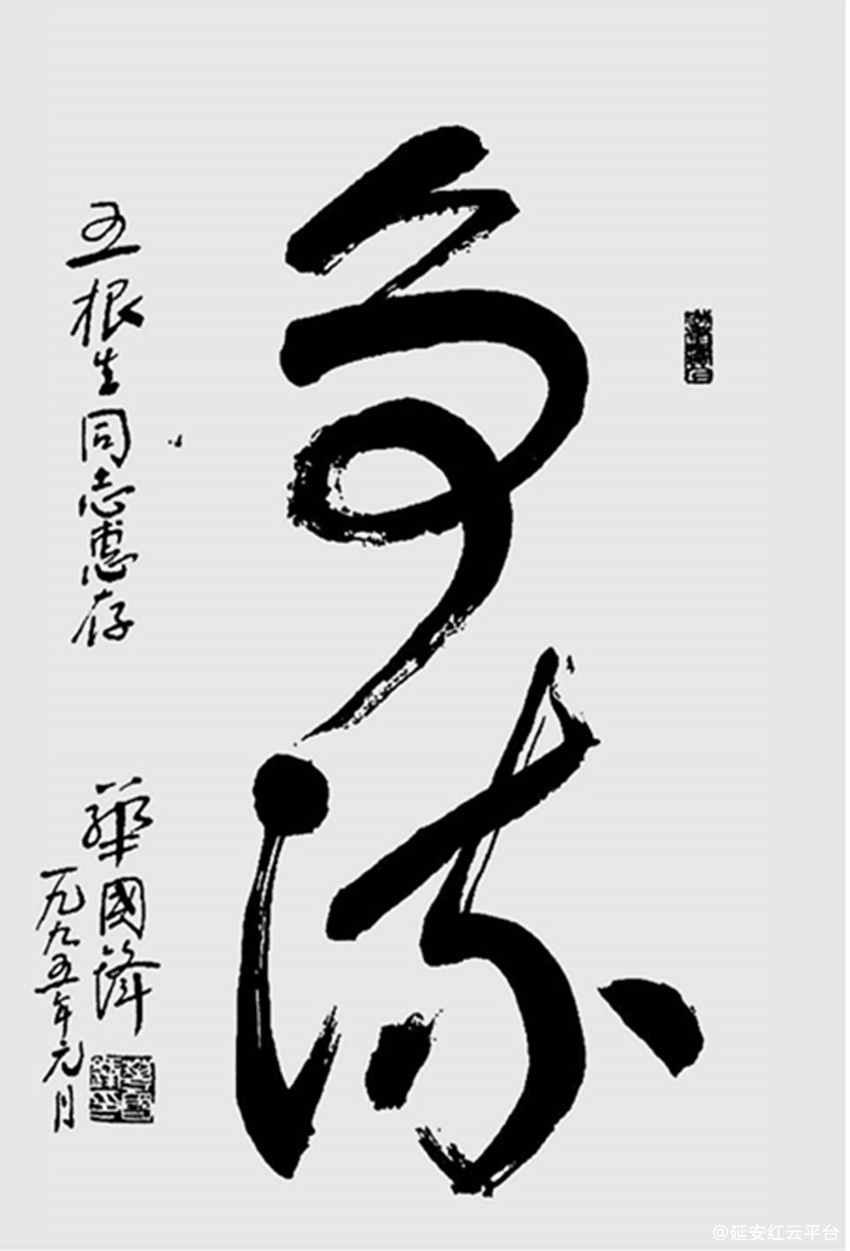 争流
五根生同志惠存
華國鋒
一九九五年元月
@延安红云平台